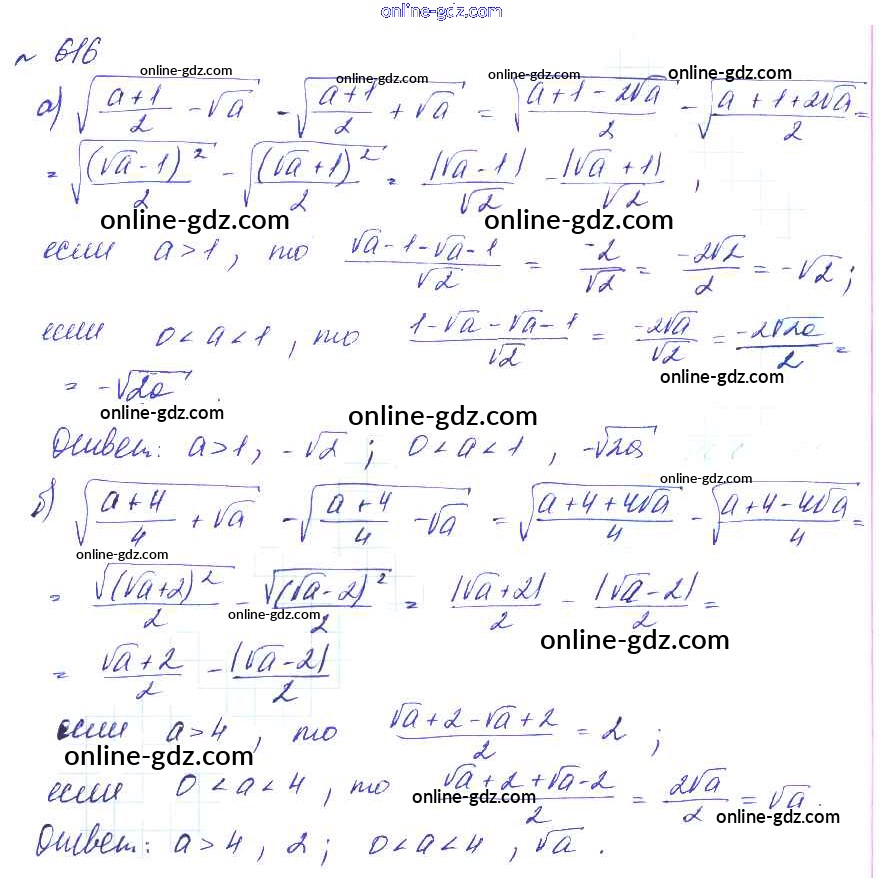 online-gdz.com
~ 616
online-gdz.com online-gdz.com online-gdz.com
а) √((a+1)/2 - √a) - √((a+1)/2 + √a) = √((a+1-2√a)/2) - √((a+1+2√a)/2) =
= √((√a-1)²/2) - √((√a+1)²/2) = |√a-1|/√2 - |√a+1|/√2 ,
online-gdz.com online-gdz.com
если a>1, то (√a-1-√a-1)/√2 = -2/√2 = -2√2/2 = -√2;
если 0<a<1, то (1-√a-√a-1)/√2 = -2√a/√2 = -2√2a/2 =
online-gdz.com
= -√2a
online-gdz.com online-gdz.com
Ответ: a>1, -√2; 0<a<1, -√2a
online-gdz.com
б) √((a+4)/4 + √a) - √((a+4)/4 - √a) = √((a+4+4√a)/4) - √((a+4-4√a)/4) =
online-gdz.com
= √((√a+2)²)/2 - √((√a-2)²)/2 = |√a+2|/2 - |√a-2|/2 =
online-gdz.com online-gdz.com
= (√a+2)/2 - |√a-2|/2
если a>4, то (√a+2-√a+2)/2 = 2;
online-gdz.com
если 0<a<4, то (√a+2+√a-2)/2 = 2√a/2 = √a.
online-gdz.com online-gdz.com
Ответ: a>4, 2; 0<a<4, √a.